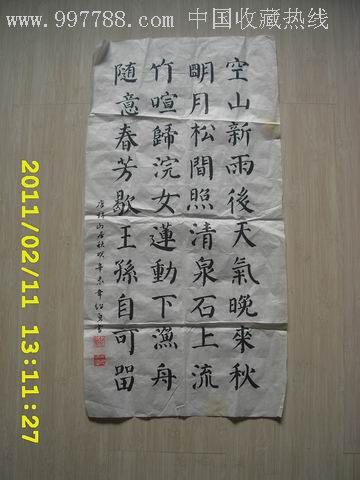 www.997788.com 中国收藏热线
空山新雨後天氣晚來秋
明月松間照清泉石上流
竹喧歸浣女蓮動下漁舟
随意春芳歇王孫自可留
2011/02/11 13:11:27